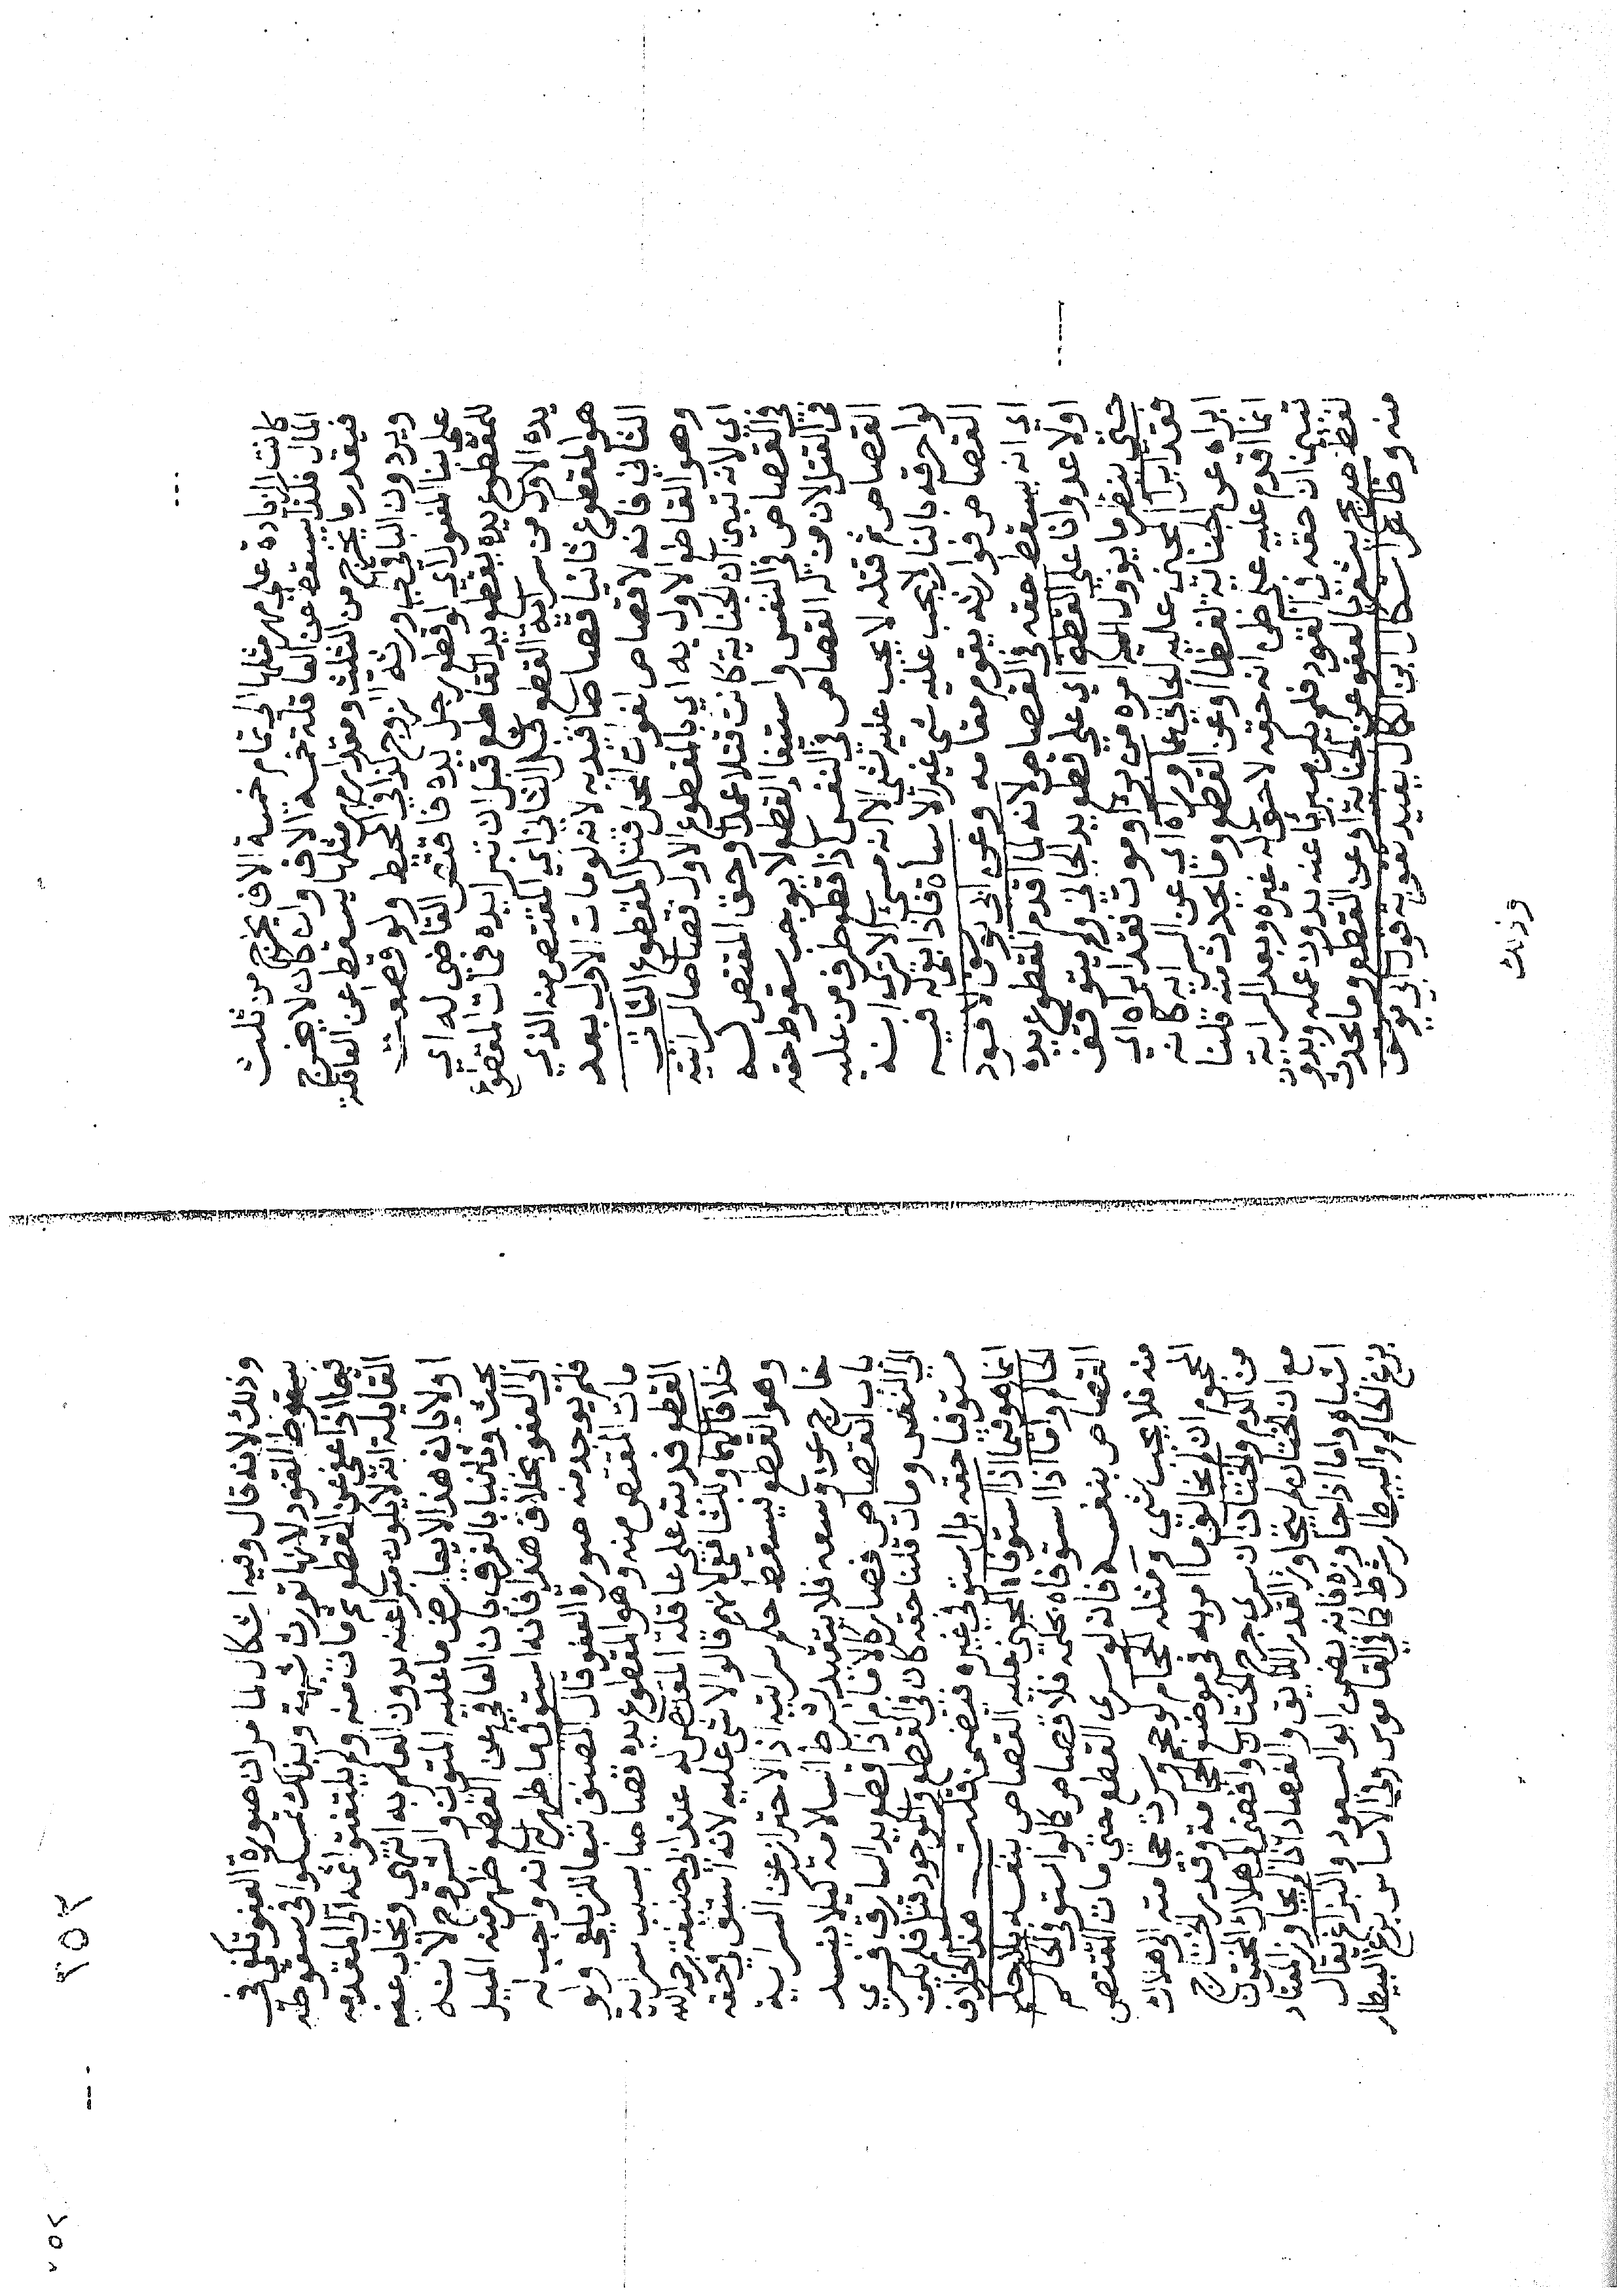 كانت الزيادة على مهر مثلها الى تمام خمسة الاف يخرج من ثلث
المال فلذا يسقط عن العاقلة خمسة الاف وان كان لا يخرج
فيقدر ما يخرج من الثلث ومقدار مهر مثلها يسقط عن العاقلة
ويردون الباقي الى ورثة الزوج كذا في المحيط ولو قصعت
على بنا المفعول اي لو قطع رجل يده فاقتص القاضي له اي
للمقطوع يده بقطع يد القاطع قبل ان تبرا يده فمات المقطوع
يده الاول من سراية القطع قتل الثاني اي المقتص منه الذي
هو المقطوع ثانيا قصاصا قيد به لانه لو مات الاول بعد
الثاني فانه لا قصاص لفوات المحل قتل المقطوع الثاني
وهو القاطع الاول به اي بالمقطوع الاول قصاصا لسرايته
اي لانه تبين ان الجناية كانت قتلا عمدا وحق المقتص له
في القصاص في النفس واستيفا القطع لا يوجب سقوط حقه
في القتل لان من له القصاص في النفس اذا قطع طرف من عليه
القصاص ثم قتله لا يجب عليه شي الا انه مسي الا ترى انه
لو احرقه بالنار لا يجب عليه شي غير الاساة فاذا بقي له فيه
القصاص فوارثه يقوم مقامه وعن ابي يوسف لا قود
اي انه يسقط حقه في القصاص لانه لما اقدم المقطوع يده
اولا عدوانا على القطع اي على قطع يد الجاني ولم يتوقف
حتى ينظر ما يوول اليه امره من برا او موت فقد ابراه اي
فقد ابرا المجني عليه الجاني عما وراه اي عن السراية كانه
ابراه عن الجناية لفظا او عن القطع وما يحدث منه قلنا
انما اقدم عليه على ظن انه حقه لا حق له غيره وبعد السراية
تبين ان حقه في القود فلم يكن مبرئا عنه بدون علمه وبدون
لفظ صريح يشعر بالعفو عن الجناية او عن القطع وما يحدث
منه وظاهر اشكال ابن الكمال يفيد تقوية قول ابي يوسف
وذلك
٢٥٢
وذلك لانه قال وفيه اشكال لما مر ان صورة العفو تكفي في
سقوط القود لانها تورث شبهة وبذلك تمسكوا في سقوطه
فيما اذا عفى عن القطع ثم مات منه ولم يلتفتوا ثمه الى المقدمة
القايلة انه لا يكون مبرا عنه بدون العلم به انتهى ويجاب عنه
اولا بان هذا لا يعارض ما عليه المتون والشروح لانه
بحث وثانيا بالفرق بان العافي عن القطع ظهر منه الميل
الى العفو بخلاف هذا فانه استوفى ما ظهر له انه واجب له
فلم يوجد منه صورة العفو قال المصنف تبعا للزيلعي ولو
مات المقتص منه وهو المقطوع يده قصاصا بسبب سراية
القطع فديته على عاقلة المقتص له عند ابي حنيفة رحمه الله
خلافا لهما وللشافعي لانهم قالوا لا شي عليه لانه استوفى حقه
وهو القطع فيسقط حكم سرايته اذ الاحتراز عن السراية
خارج عن وسعه فلا يتقيد بشرط السلامة كيلا ينسد
باب القصاص فصار كالامام اذا قطع يد السارق فسرى
الى النفس ومات قلنا حقه كان في القطع والموجود قتل فلم يكن
مستوفيا حقه بل استوفى غيره فيضمن قلت هذا الخلاف
انما هو فيما اذا استوفاه المجني عليه القصاص بنفسه بلا حكم
الحاكم واما اذا استوفاه بحكمه فلا قصاص كما لو استوفى الحاكم
القصاص بنفسه فانه لو سرى القطع حتى مات المقتص
منه فلا يجب شي ومثله الحجام لو حجم وسرت حجامته الى هلاك
المحجوم ان لم يخالف ما امر به في موضع الحجامة وقدر الخارج
من الدم والختان ان سرى جرح الختان وافضى الى هلاك المختون
مع ان الختان لم يتجاوز القدر اللايق والفصاد اذا لم يجاوز المعتاد
اتساعا واما اذا جاوزه فانه يضمن ابو السعود والبزاغ يقال
بزغ الحاجم والبيطار شرط كما في القاموس وفي الاساس بزغ البيطار
٢٥٢